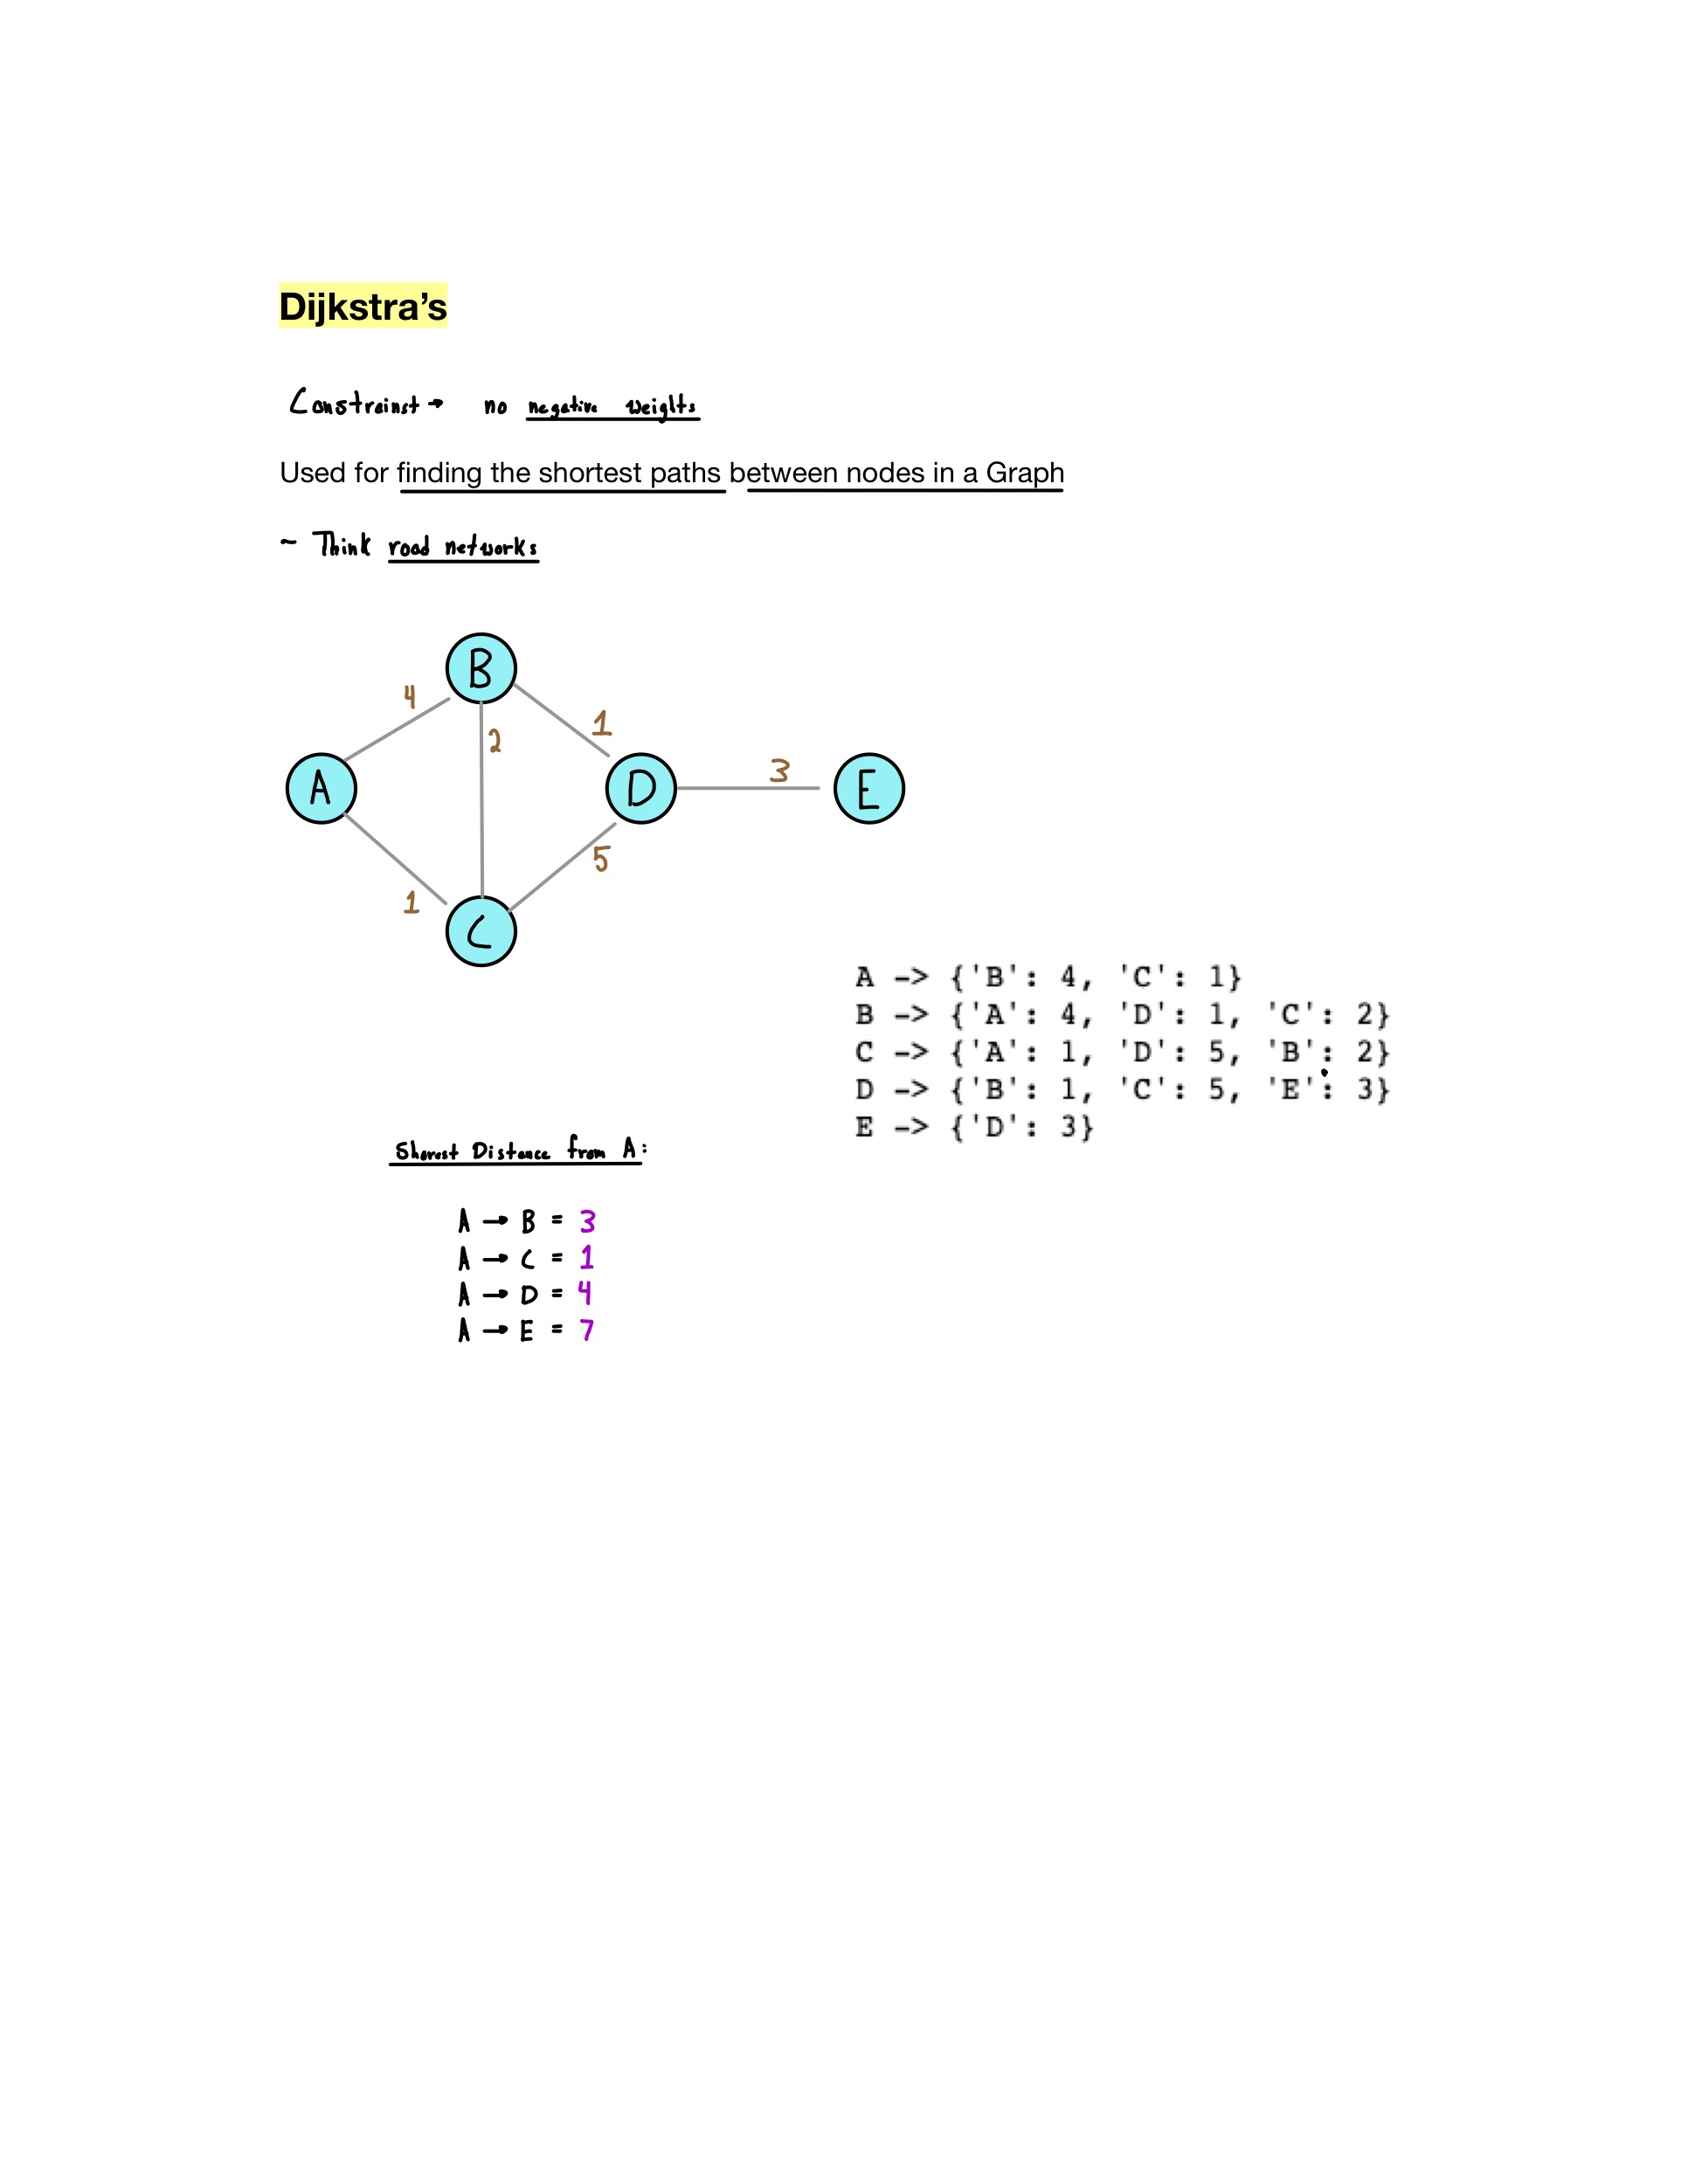 Dijkstra's
Constrainst → no negative weights
Used for finding the shortest paths between nodes in a Graph
~ Think road networks
B
4
1
2
A
D
3
E
5
1
C
A -> {'B': 4, 'C': 1}
B -> {'A': 4, 'D': 1, 'C': 2}
C -> {'A': 1, 'D': 5, 'B': 2}
D -> {'B': 1, 'C': 5, 'E': 3}
E -> {'D': 3}
Shorest Distance from A:
A → B = 3
A → C = 1
A → D = 4
A → E = 7